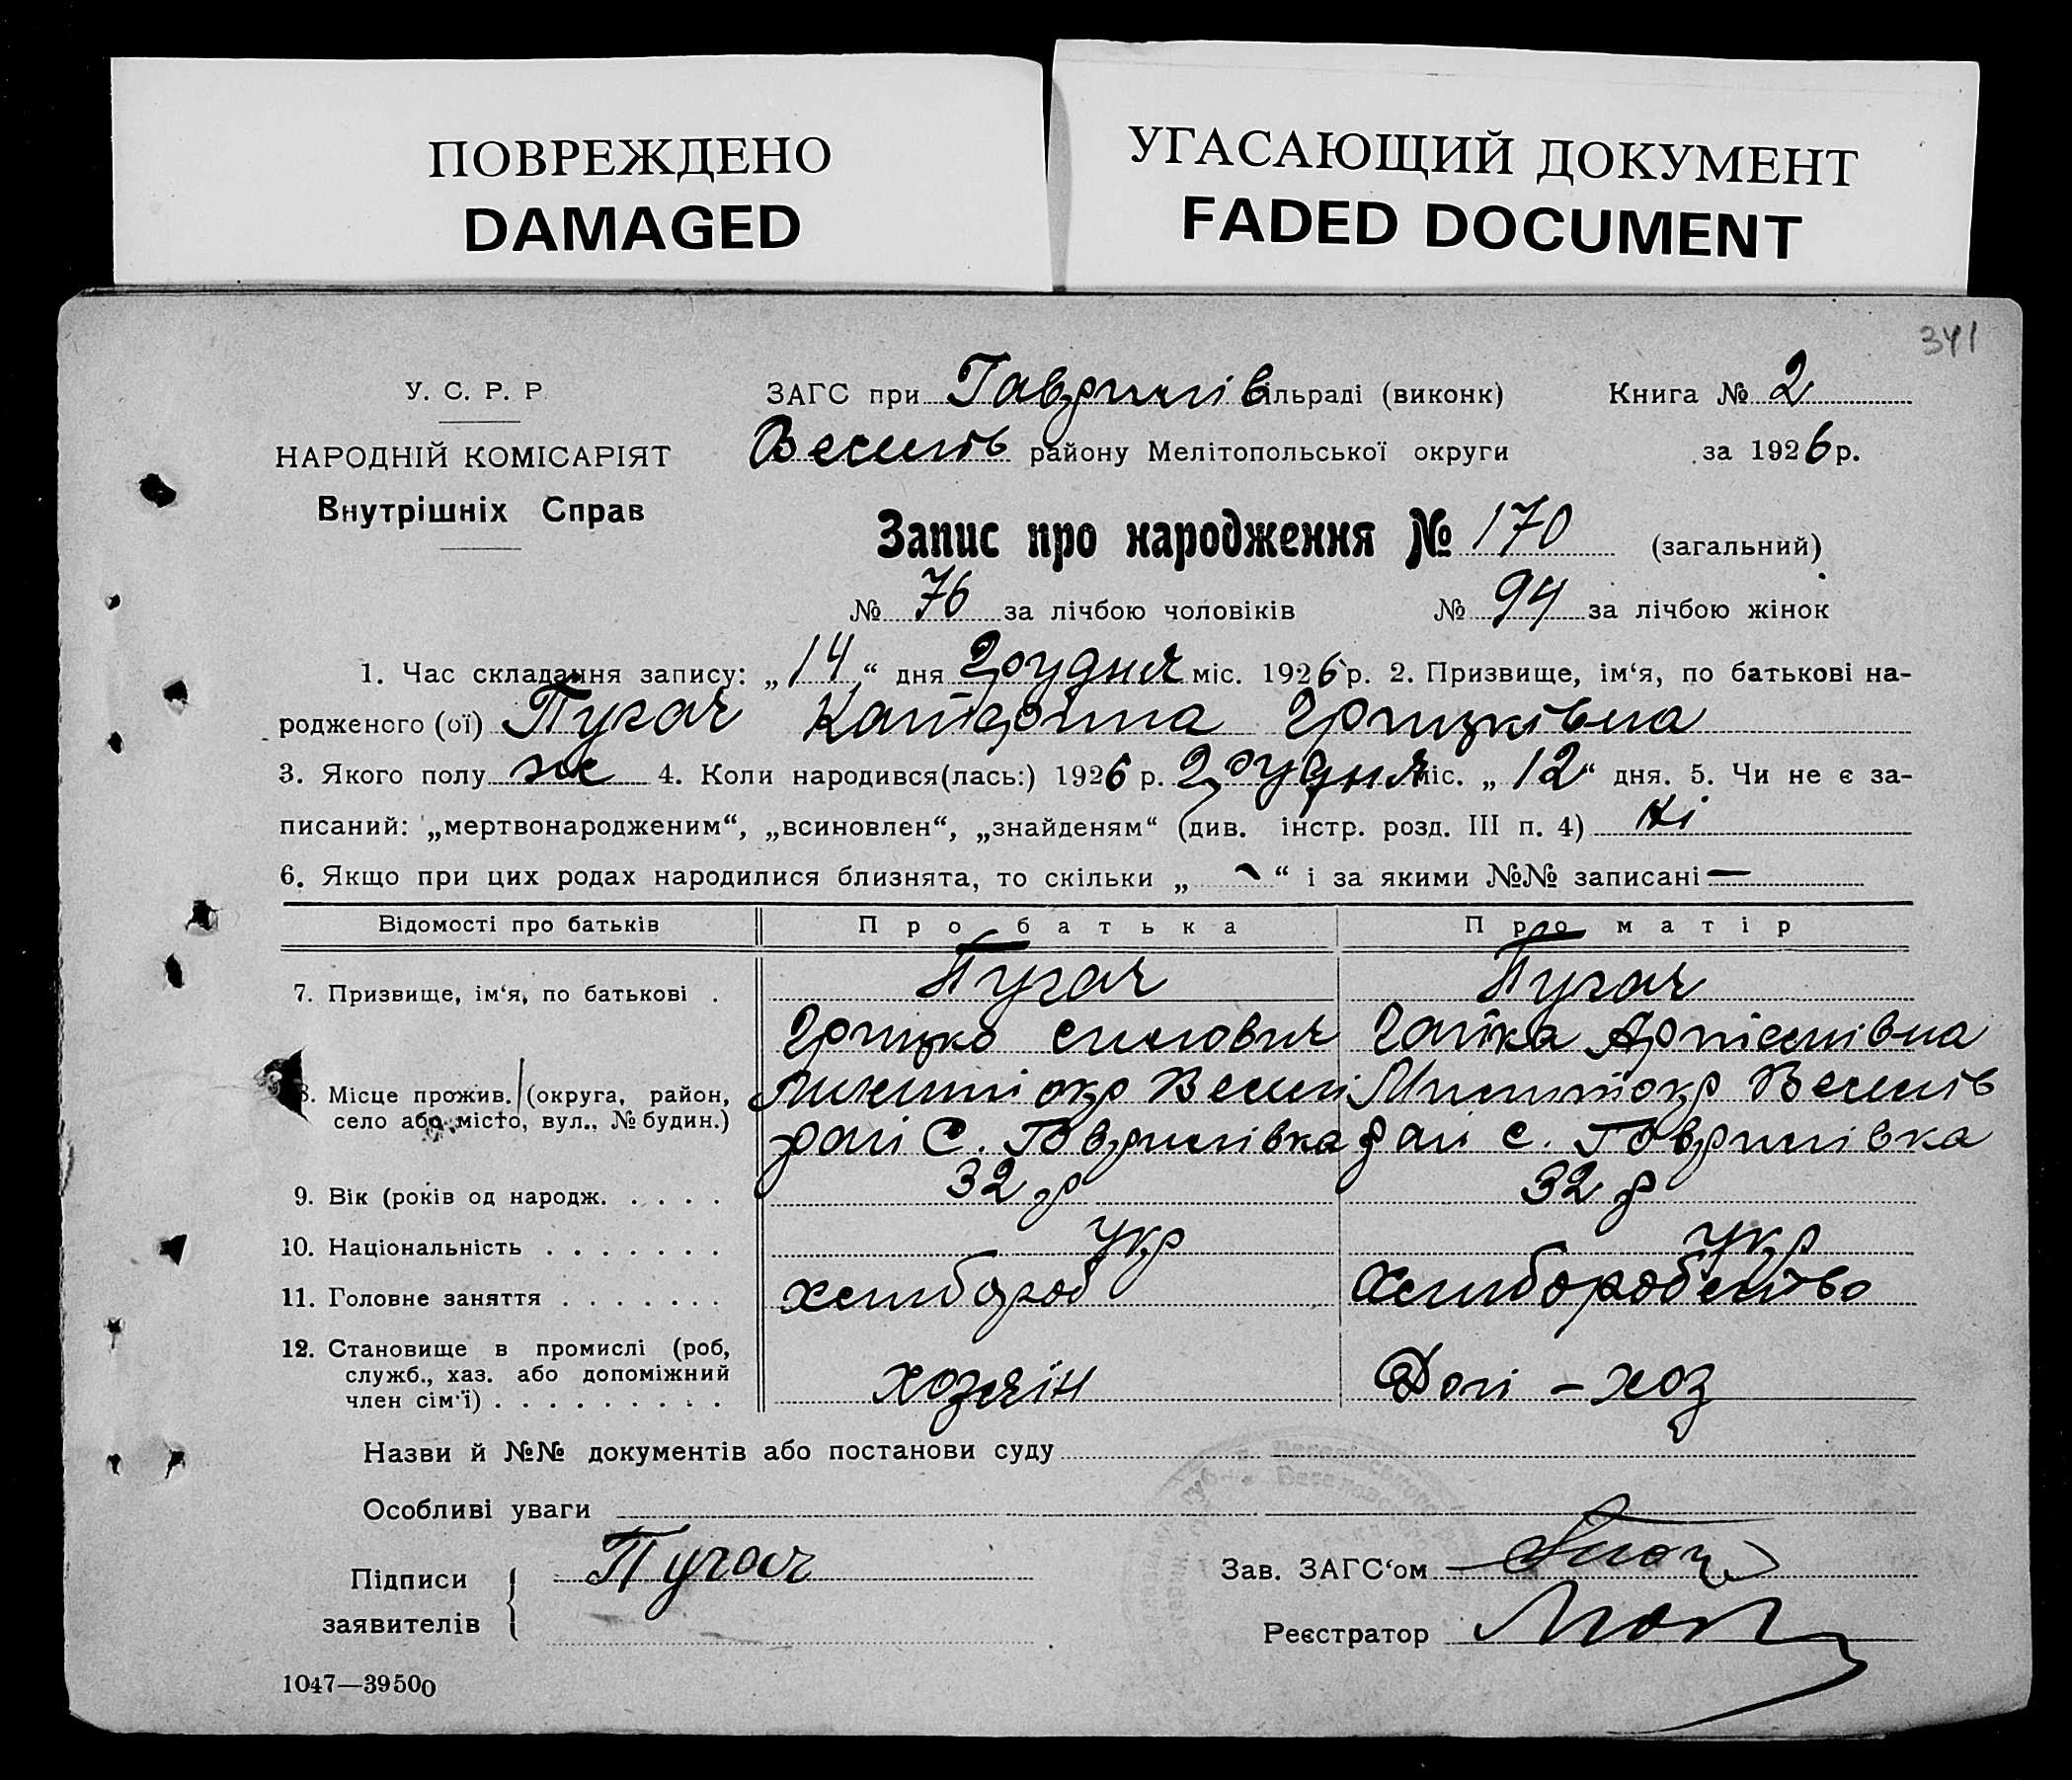 ПОВРЕЖДЕНО
DAMAGED
УГАСАЮЩИЙ ДОКУМЕНТ
FADED DOCUMENT
341
У. С. Р. Р.
НАРОДНІЙ КОМІСАРІЯТ
Внутрішніх Справ
ЗАГС при Гаврилів ільраді (виконк) Книга № 2
Веселів району Мелітопольської округи за 1926 р.
Запис про народження № 170 (загальний)
№ 76 за лічбою чоловіків № 94 за лічбою жінок
1. Час складання запису: „14“ дня Грудня міс. 1926 р. 2. Призвище, ім‘я, по батькові на-
родженого (ої) Пугач Катерина Грицківна
3. Якого полу ж 4. Коли народився(лась:) 1926 р. Грудня міс. „12“ дня. 5. Чи не є за-
писаний: „мертвонародженим“, „всиновлен“, „знайденям“ (див. інстр. розд. III п. 4) ні
6. Якщо при цих родах народилися близнята, то скільки „ - “ і за якими №№ записані —
Відомості про батьків Про батька Про матір
7. Призвище, ім‘я, по батькові . Пугач Пугач
Грицко Артемівна
8. Місце прожив. (округа, район, Веселів
село або місто, вул., № будин.) рай с. Гаврилівка рай с. Гаврилівка
9. Вік (років од народж. . . . . 32 р 32 р
10. Національність . . . . . . . укр укр
11. Головне заняття . . . . . . . хлибороб Хлиборобство
12. Становище в промислі (роб,
служб., хаз. або допоміжний хозяін Дом - хоз
член сім‘ї) . . . . . . . . . .
Назви й №№ документів або постанови суду
Особливі уваги
Підписи Пугач Зав. ЗАГС‘ом
заявителів Реєстратор
1047—39500